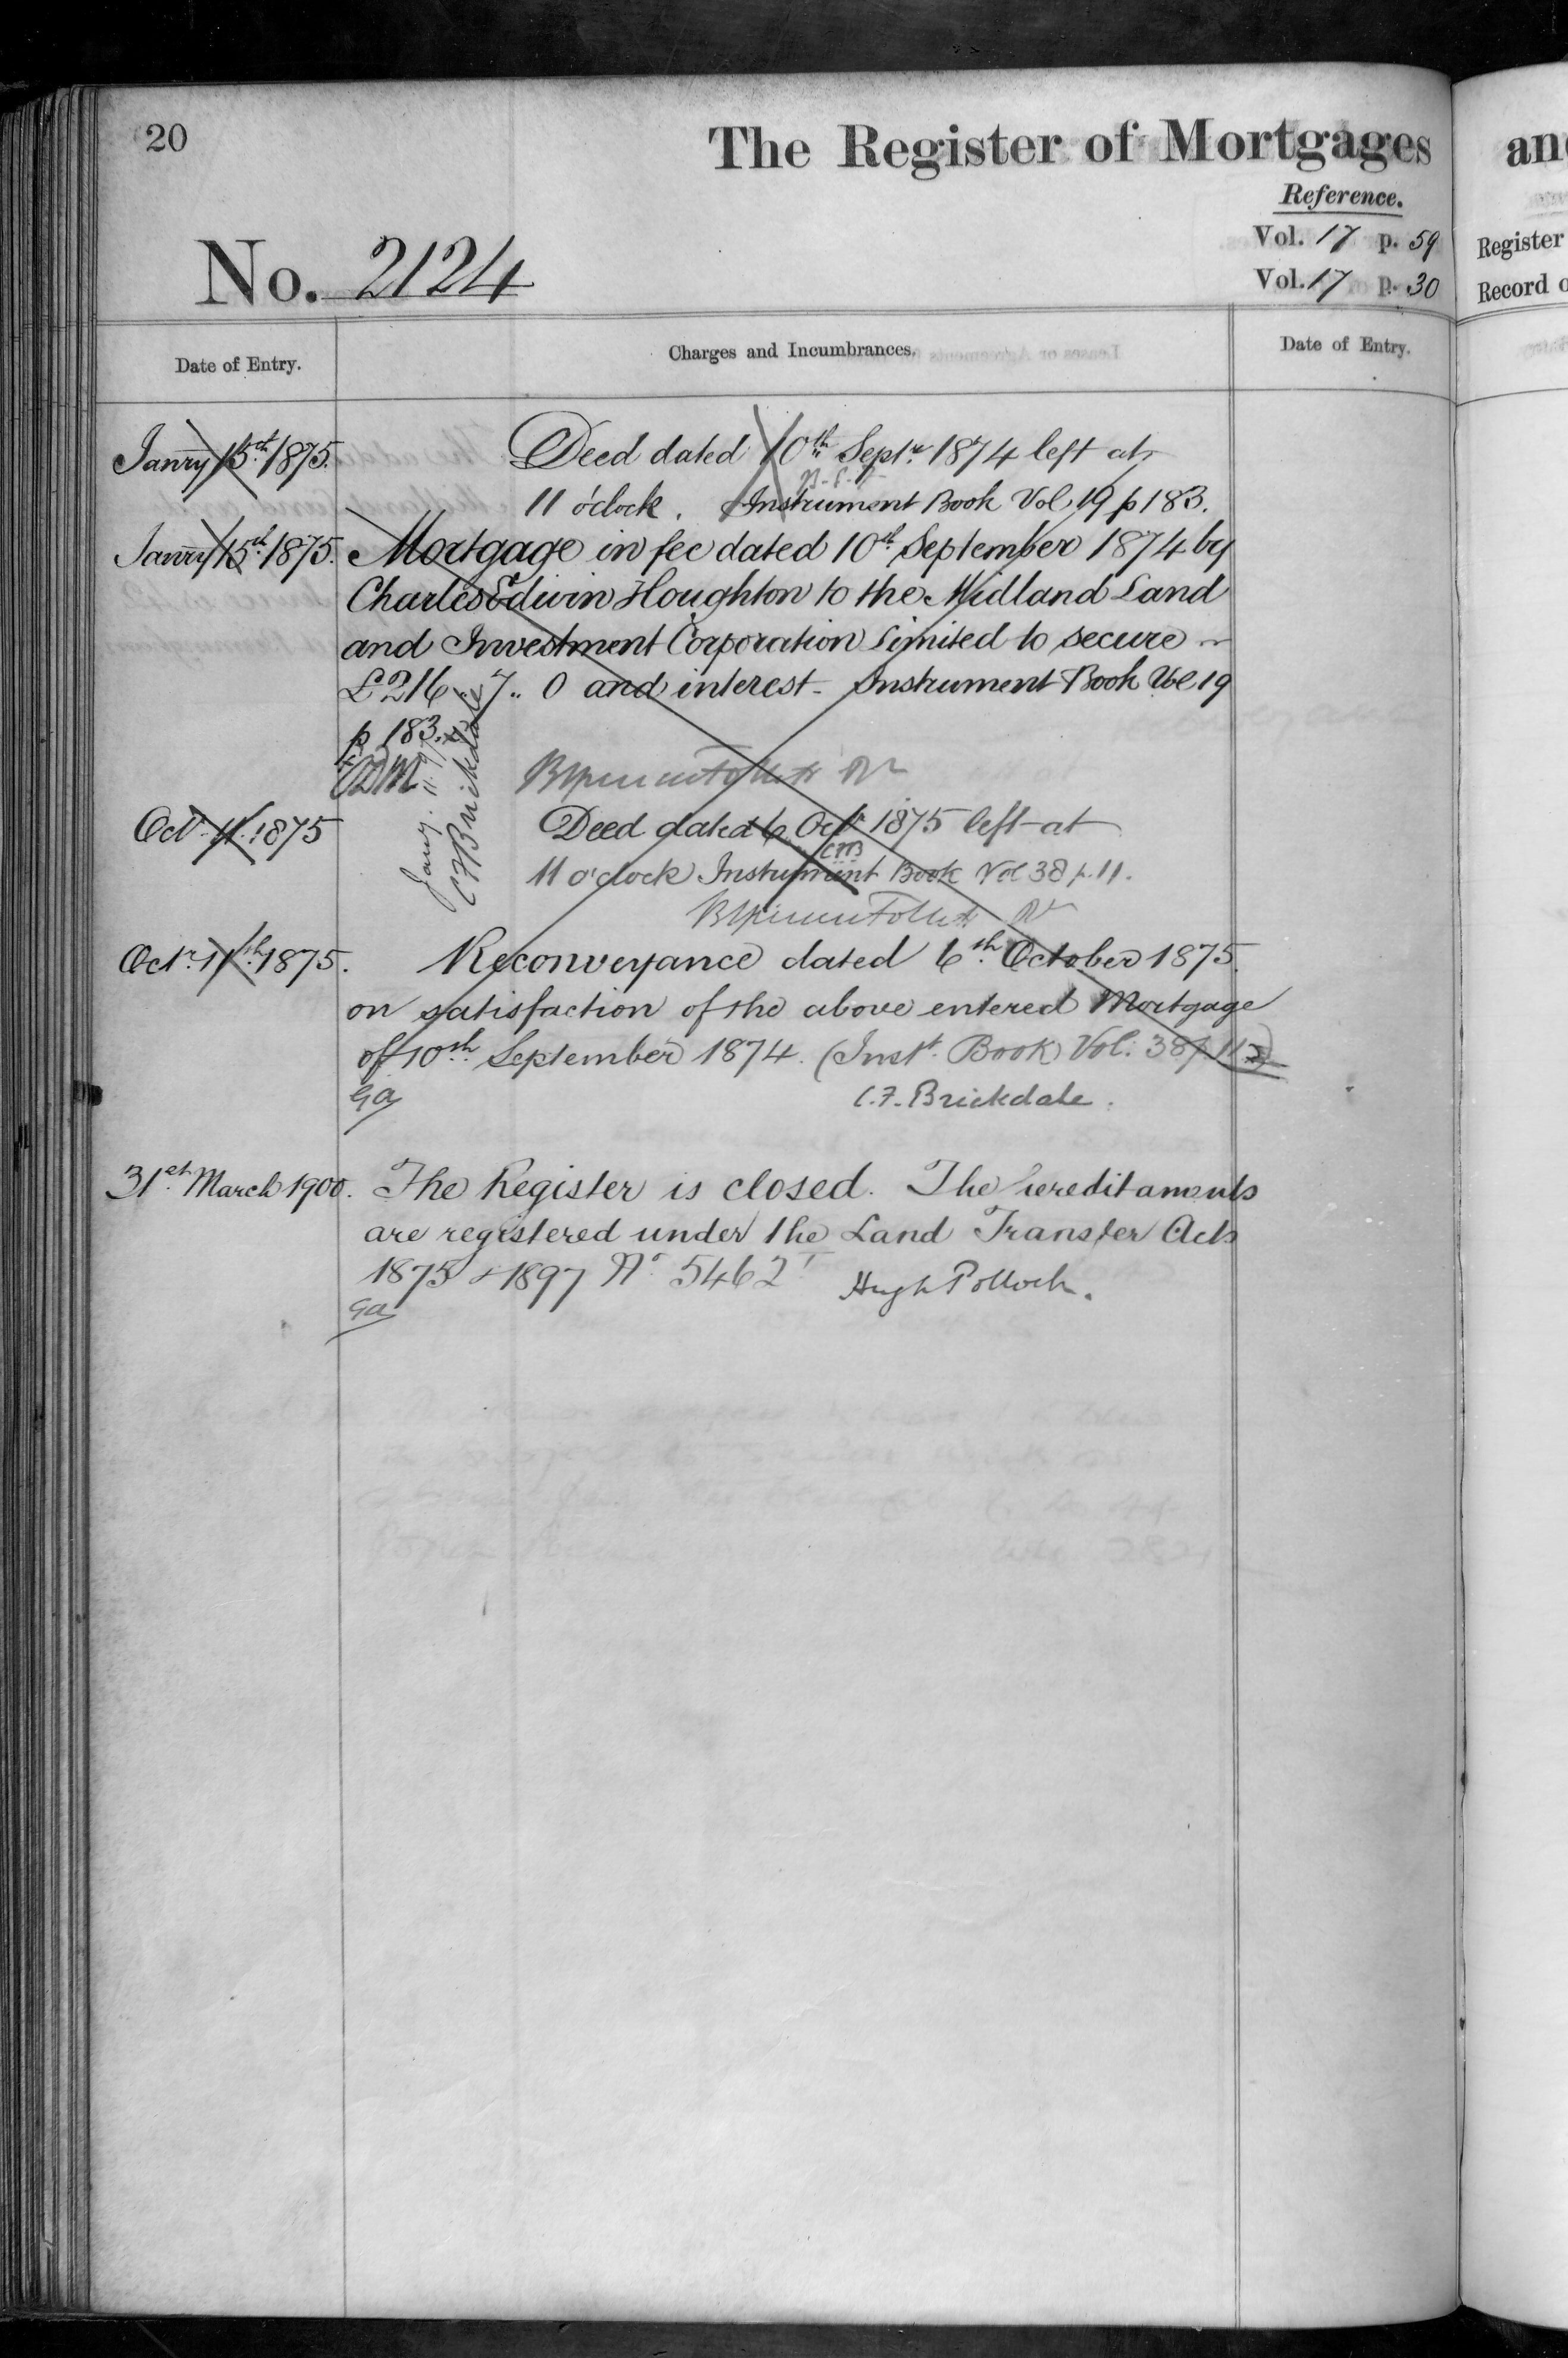 20
The Register of Mortgages
an
Reference.
Vol. 17 p. 59
Register
No. 2124
Vol. 17 p. 30
Record o
Date of Entry.
Charges and Incumbrances.
Date of Entry.
Janry 15th 1875.
Deed dated 10th Septr 1874 left at
11 o'clock. Instrument Book Vol 19 p 183.
Janry 15th 1875.
Mortgage in fee dated 10th September 1874 by
Charles Edwin Houghton to the Midland Land
and Investment Corporation Limited to secure
£216 .. 7 .. 0 and interest - Instrument Book Vol 19
p 183.
CFBrickdale
Oct. 11. 1875
Deed dated 6 Octr 1875 left at
11 o'clock Instrument Book Vol 38 p. 11.
Octr. 11th 1875.
Reconveyance dated 6th October 1875.
on satisfaction of the above entered Mortgage
of 10th September 1874. (Inst. Book Vol. 38 p 11)
GA
C.F. Brickdale.
31st March 1900.
The Register is closed. The hereditaments
are registered under the Land Transfer Acts
1875 & 1897 No 5462
Hugh Pollock.
GA